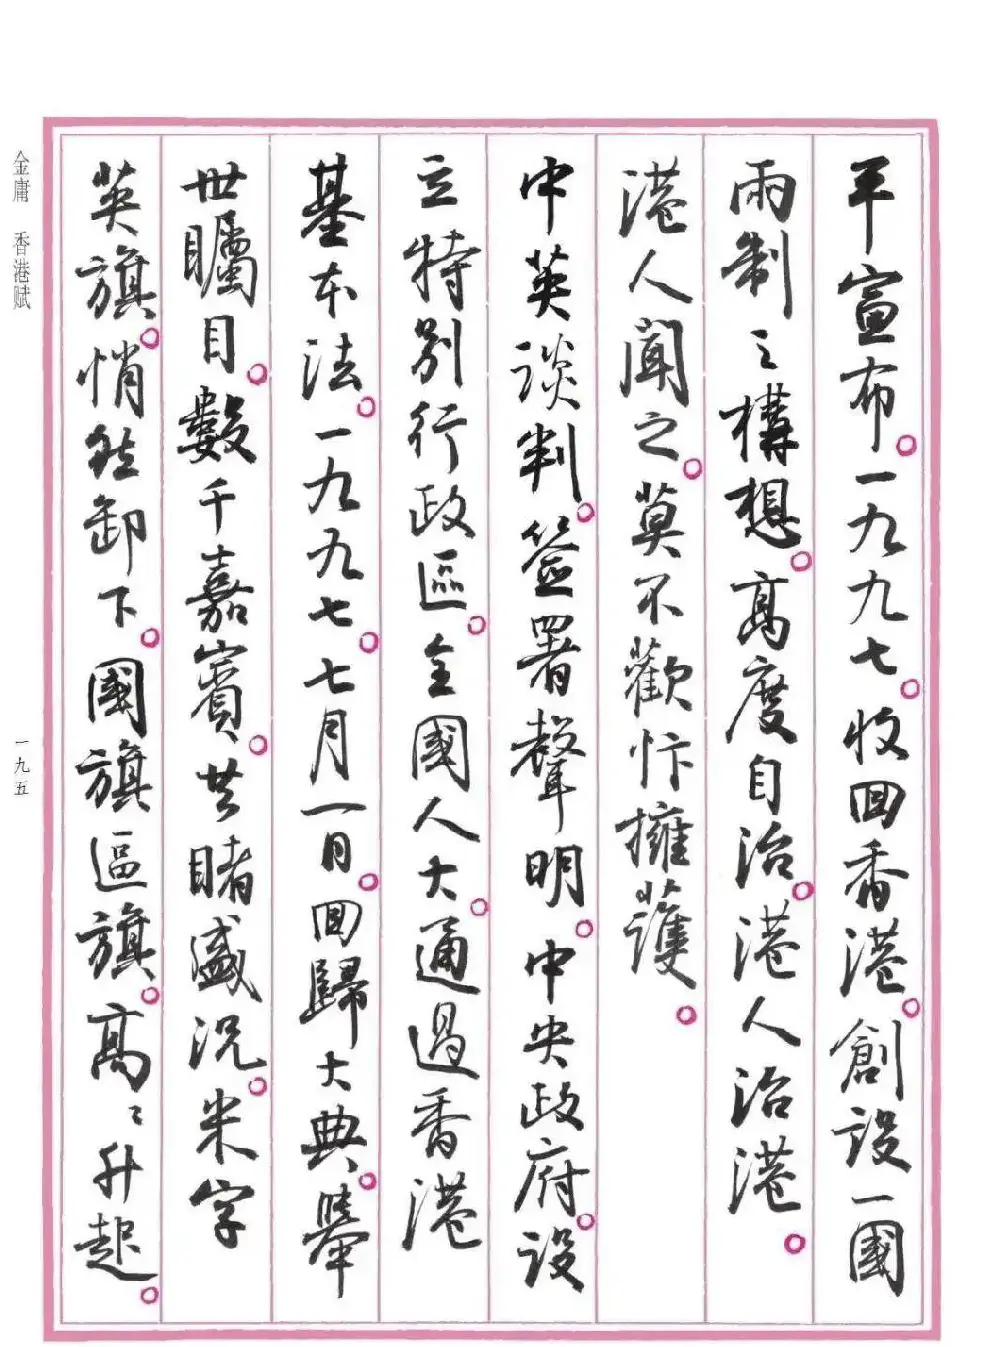 平宣布。一九九七。收回香港。創設一國
兩制之構想。高度自治。港人治港。
港人聞之。莫不歡忭擁護。
中英談判。簽署聲明。中央政府。設
立特別行政區。全國人大。通過香港
基本法。一九九七。七月一日。回歸大典。舉
世矚目。數千嘉賓。共睹盛況。米字
英旗。悄然卸下。國旗區旗。高〻升起。
金庸 香港赋
一九五